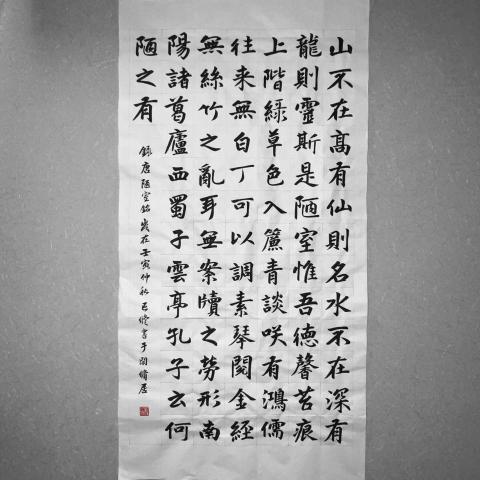 山不在髙有仙則名水不在深有
龍則靈斯是陋室惟吾德馨苔痕
上階綠草色入簾青談咲有鴻儒
往来無白丁可以調素琴閱金經
無絲竹之亂耳無案牘之勞形南
陽諸葛廬西蜀子雲亭孔子云何
陋之有
錄唐陋室銘歲在壬寅仲秋書于居